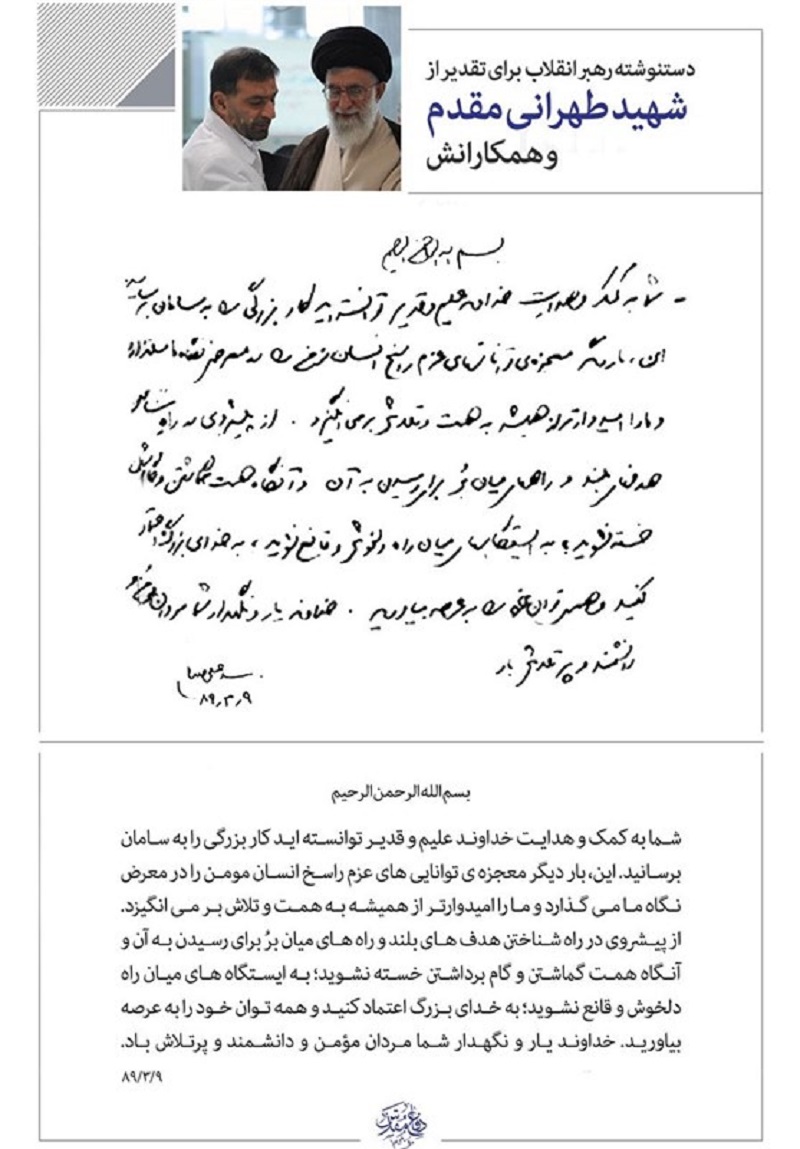 دستنوشته رهبر انقلاب برای تقدیر از
شهید طهرانی مقدم
و همکارانش
بسم الله الرحمن الرحیم
- شما به کمک و هدایت خداوند علیم و قدیر توانسته‌اید کار بزرگی را به سامان برسانید
این، بار دیگر معجزه‌ی توانائی‌های عزم راسخ انسان مؤمن را در معرض نگاه ما میگذارد
و ما را امیدوارتر از همیشه به همت و تلاش برمی‌انگیزد . از پیشروی در راه شناختن
هدفهای بلند و راههای میان بُر برای رسیدن به آن و آنگاه همت گماشتن و گام برداشتن
خسته نشوید؛ به ایستگاههای میان راه دلخوش و قانع نشوید ، به خدای بزرگ اعتماد
کنید و همه‌ی توان خود را به عرصه بیاورید . خداوند یار و نگهدار شما مردان مؤمن و
دانشمند و پر تلاش باد
۸۹٫۳٫۹
بسم الله الرحمن الرحیم
شما به کمک و هدایت خداوند علیم و قدیر توانسته اید کار بزرگی را به سامان
برسانید. این، بار دیگر معجزه ی توانایی های عزم راسخ انسان مومن را در معرض
نگاه ما می گذارد و ما را امیدوارتر از همیشه به همت و تلاش بر می انگیزد.
از پیشروی در راه شناختن هدف های بلند و راه های میان برُ برای رسیدن به آن و
آنگاه همت گماشتن و گام برداشتن خسته نشوید؛ به ایستگاه های میان راه
دلخوش و قانع نشوید؛ به خدای بزرگ اعتماد کنید و همه توان خود را به عرصه
بیاورید. خداوند یار و نگهدار شما مردان مؤمن و دانشمند و پرتلاش باد.
۸۹/۳/۹
دفاع مقدس